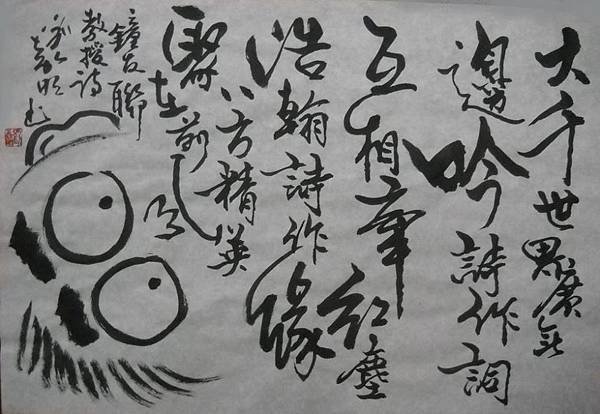 大千世界廣無
邊吟詩作詞
互相牽紅塵
浩翰詩作緣
八方精英
聚在前
鐘友聯
教授詩